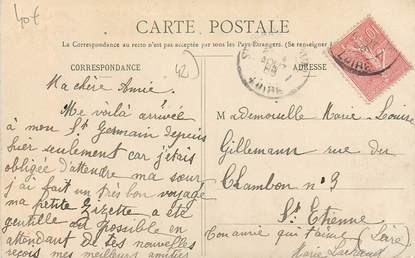 40€
CARTE POSTALE
La Correspondance au recto n'est pas acceptée par tous les Pays Étrangers. (Se renseigner à
CORRESPONDANCE
ADRESSE
42
LOIRE
LOIRE
10
Ma chère Amie.
Me voilà arrivée
à mon St Germain depuis
hier seulement car j'étais
obligée d'attendre ma sœur
j'ai fait un très bon voyage
ma petite Zizette a été
gentille au possible en
attendant de tes nouvelles
reçois mes meilleurs amitiés
Mademoiselle Marie-Louise
Gillemann rue du
Chambon n° 9
St Etienne
(Loire)
Ton amie qui t'aime
Marie